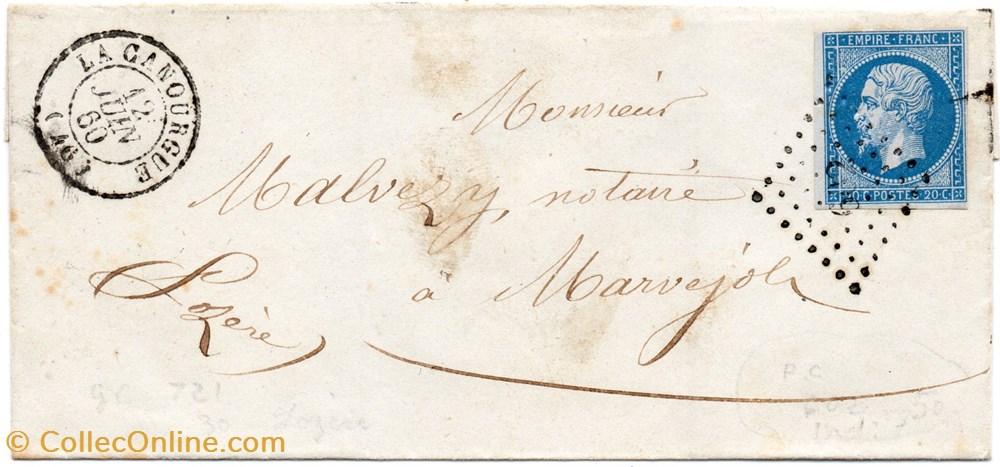 LA CANOURGUE
12
JUIN
60
(47)
EMPIRE·FRANC·
20·C·POSTES·20·C·
Monsieur
Malvezy, notaire
à Marvejols
Lozère
gc 721
30 Lozère
P.C
© CollecOnline.com